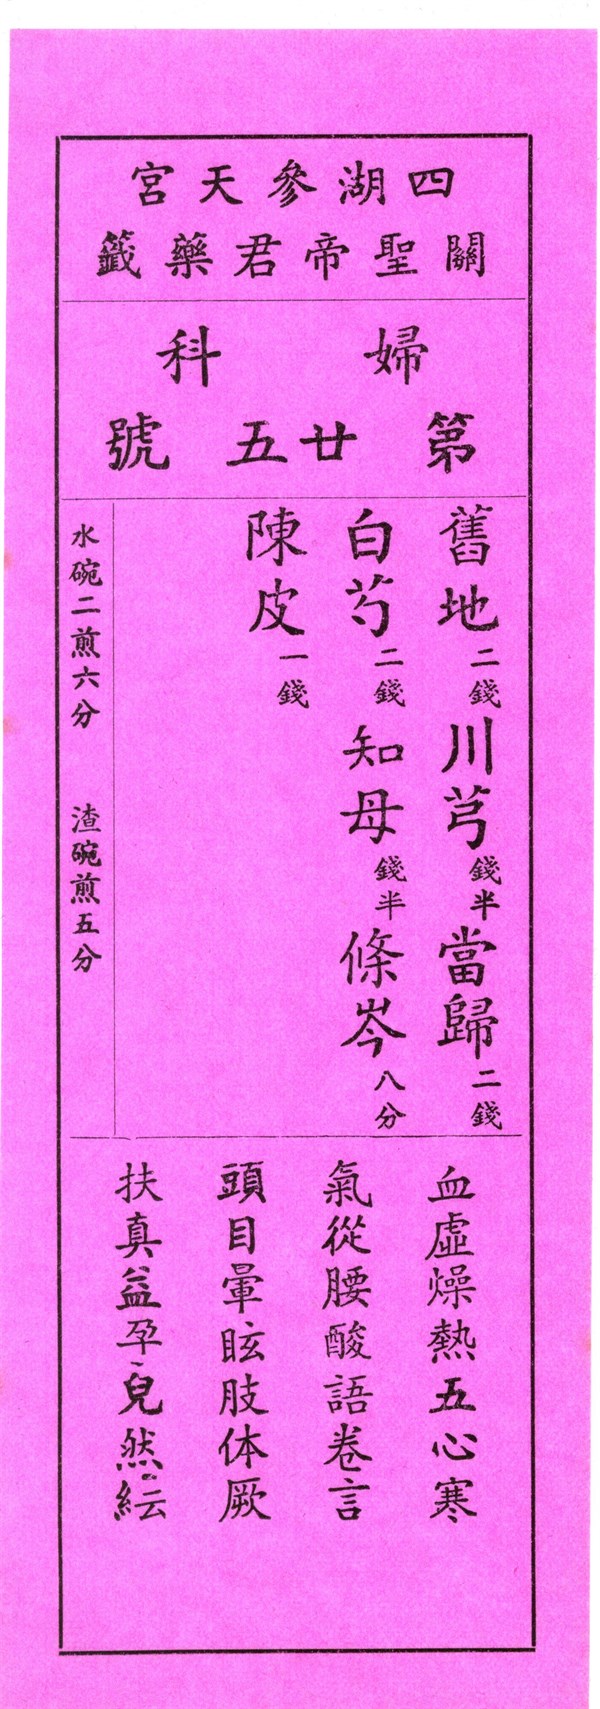 四湖參天宮
關聖帝君藥籤
婦科
第廿五號
舊地二錢川芎錢半當歸二錢
白芍二錢知母錢半條岑八分
陳皮一錢
水碗二煎六分　渣碗煎五分
血虛燥熱五心寒
氣從腰酸語卷言
頭目暈眩肢体厥
扶真益孕兒然紜